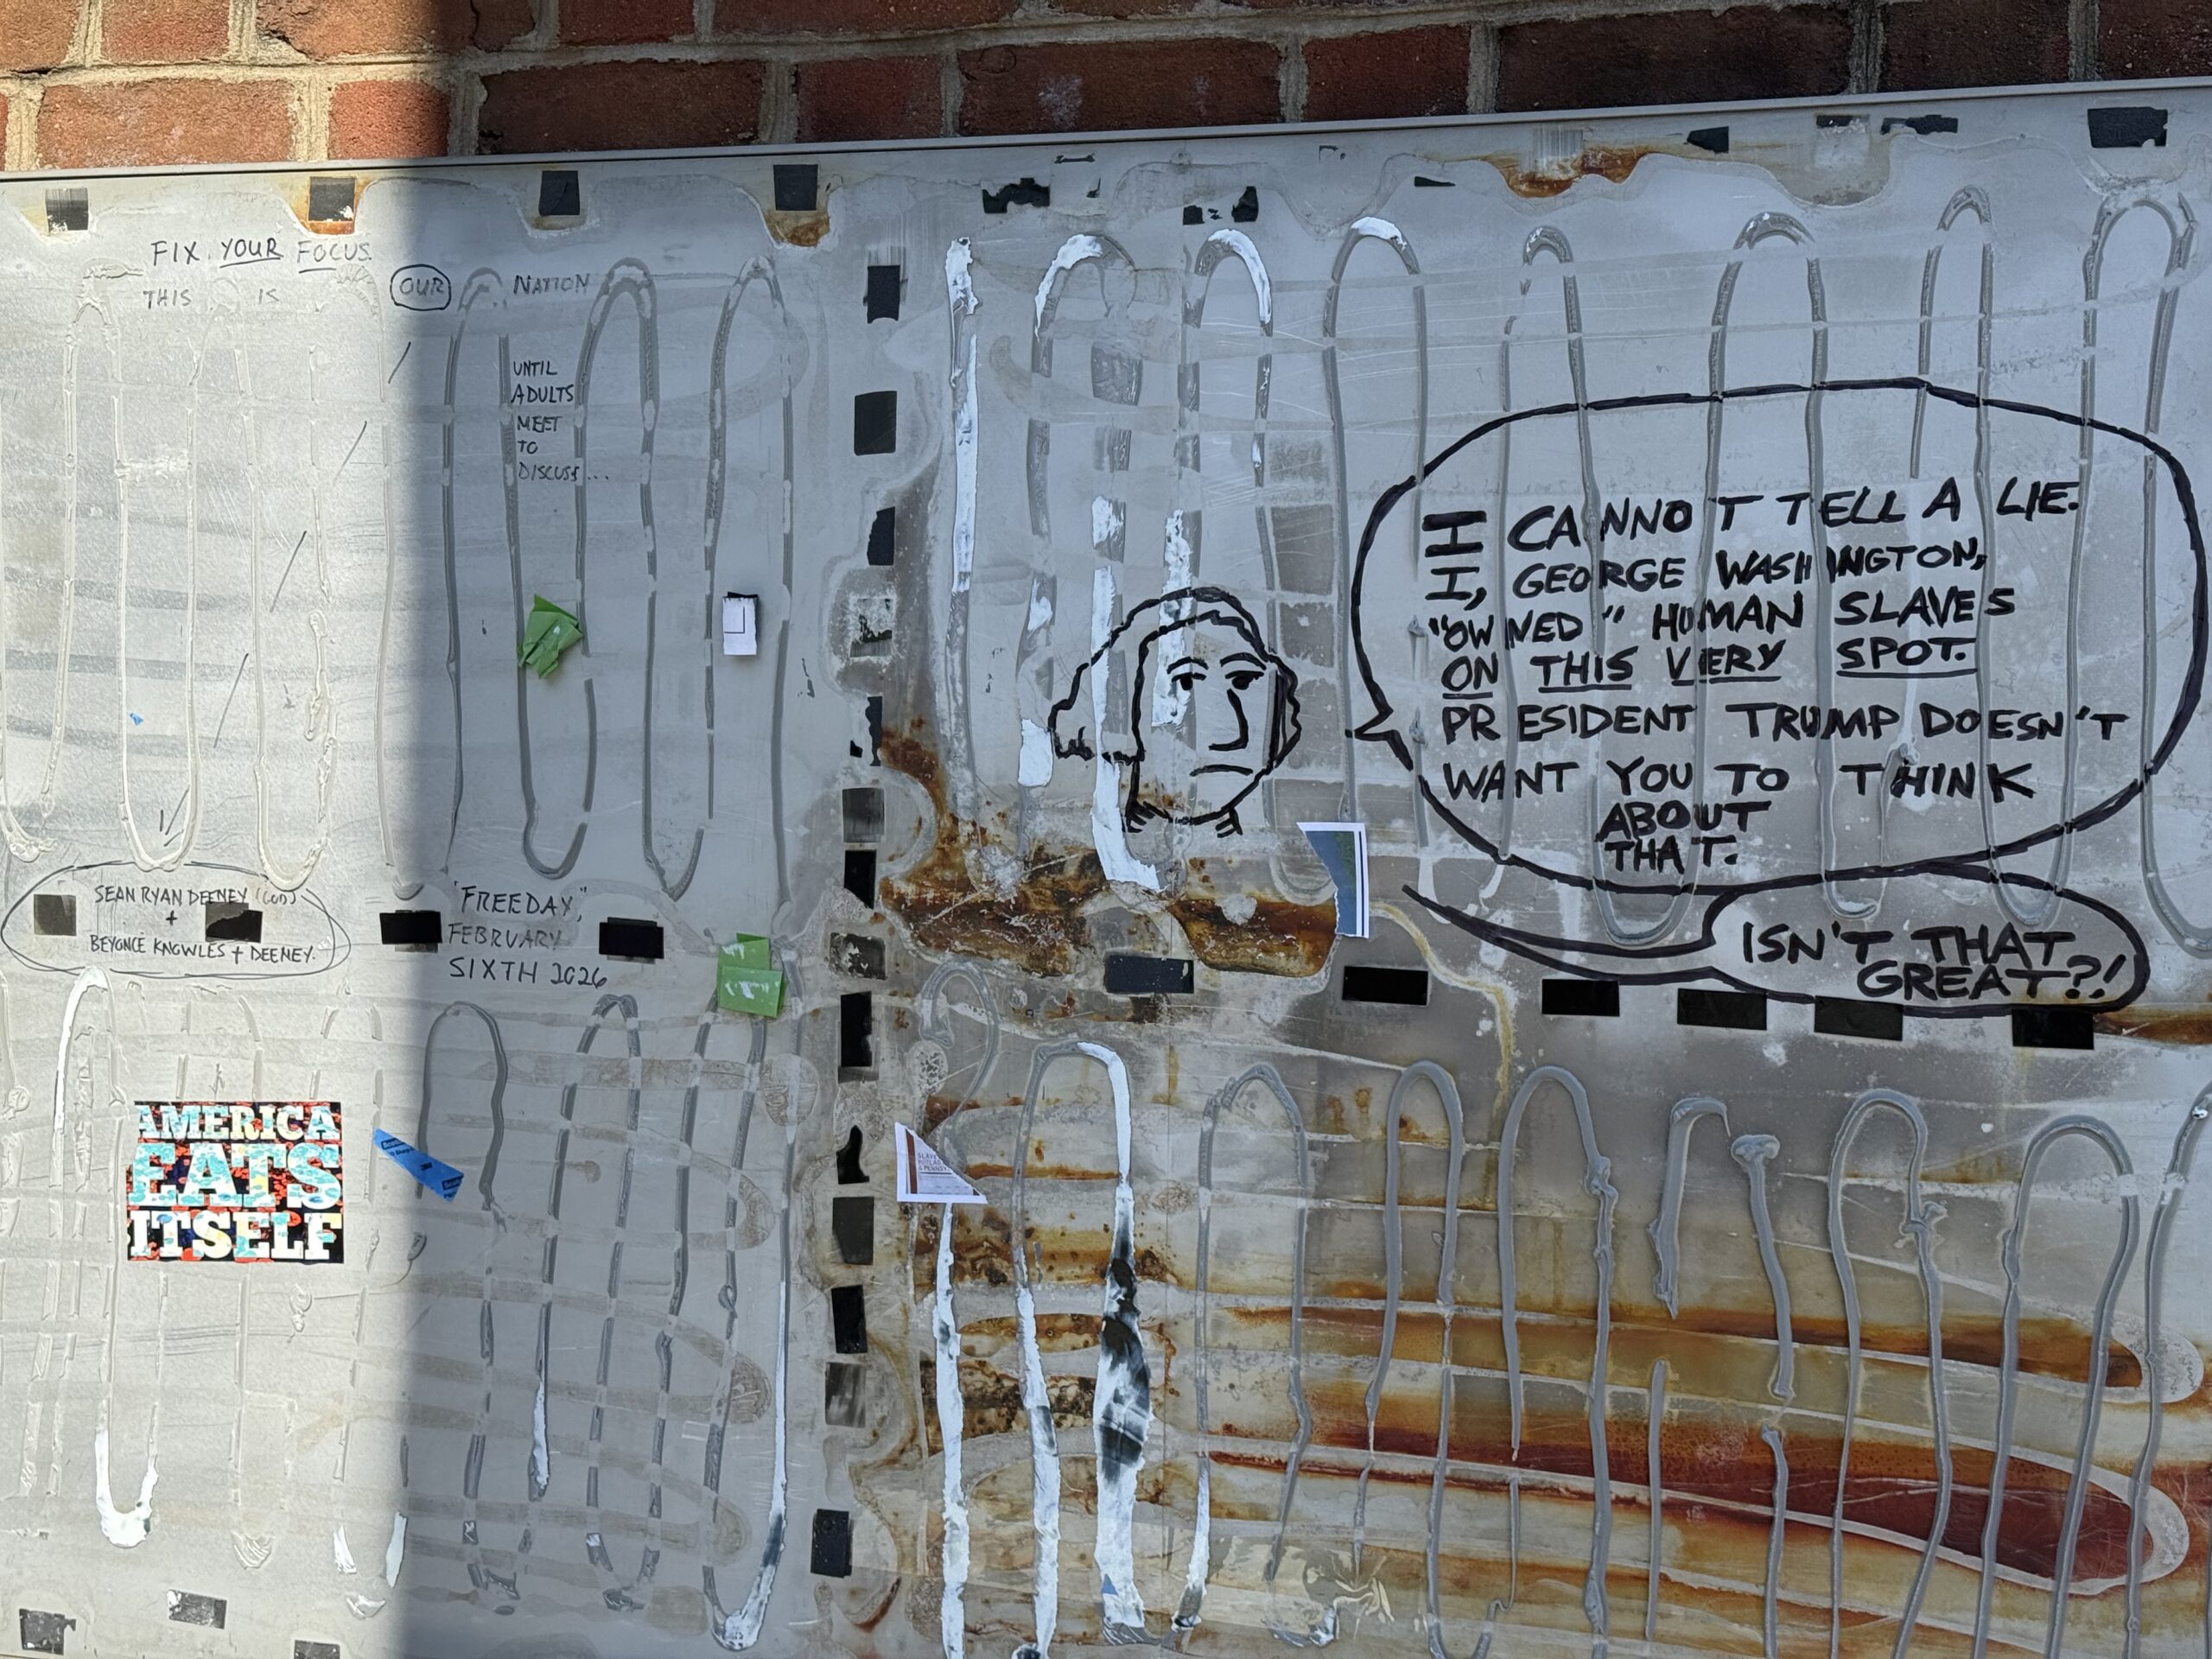 FIX YOUR FOCUS.
THIS IS OUR NATION
UNTIL
ADULTS
MEET
TO
DISCUSS...
I CANNOT TELL A LIE.
I, GEORGE WASHINGTON,
"OWNED" HUMAN SLAVES
ON THIS VERY SPOT.
PRESIDENT TRUMP DOESN'T
WANT YOU TO THINK
ABOUT
THAT.
ISN'T THAT
GREAT?!
SEAN RYAN DEENEY (GOD)
+
BEYONCÉ KNOWLES + DEENEY.
"FREEDAY,"
FEBRUARY
SIXTH 2026
AMERICA
EATS
ITSELF